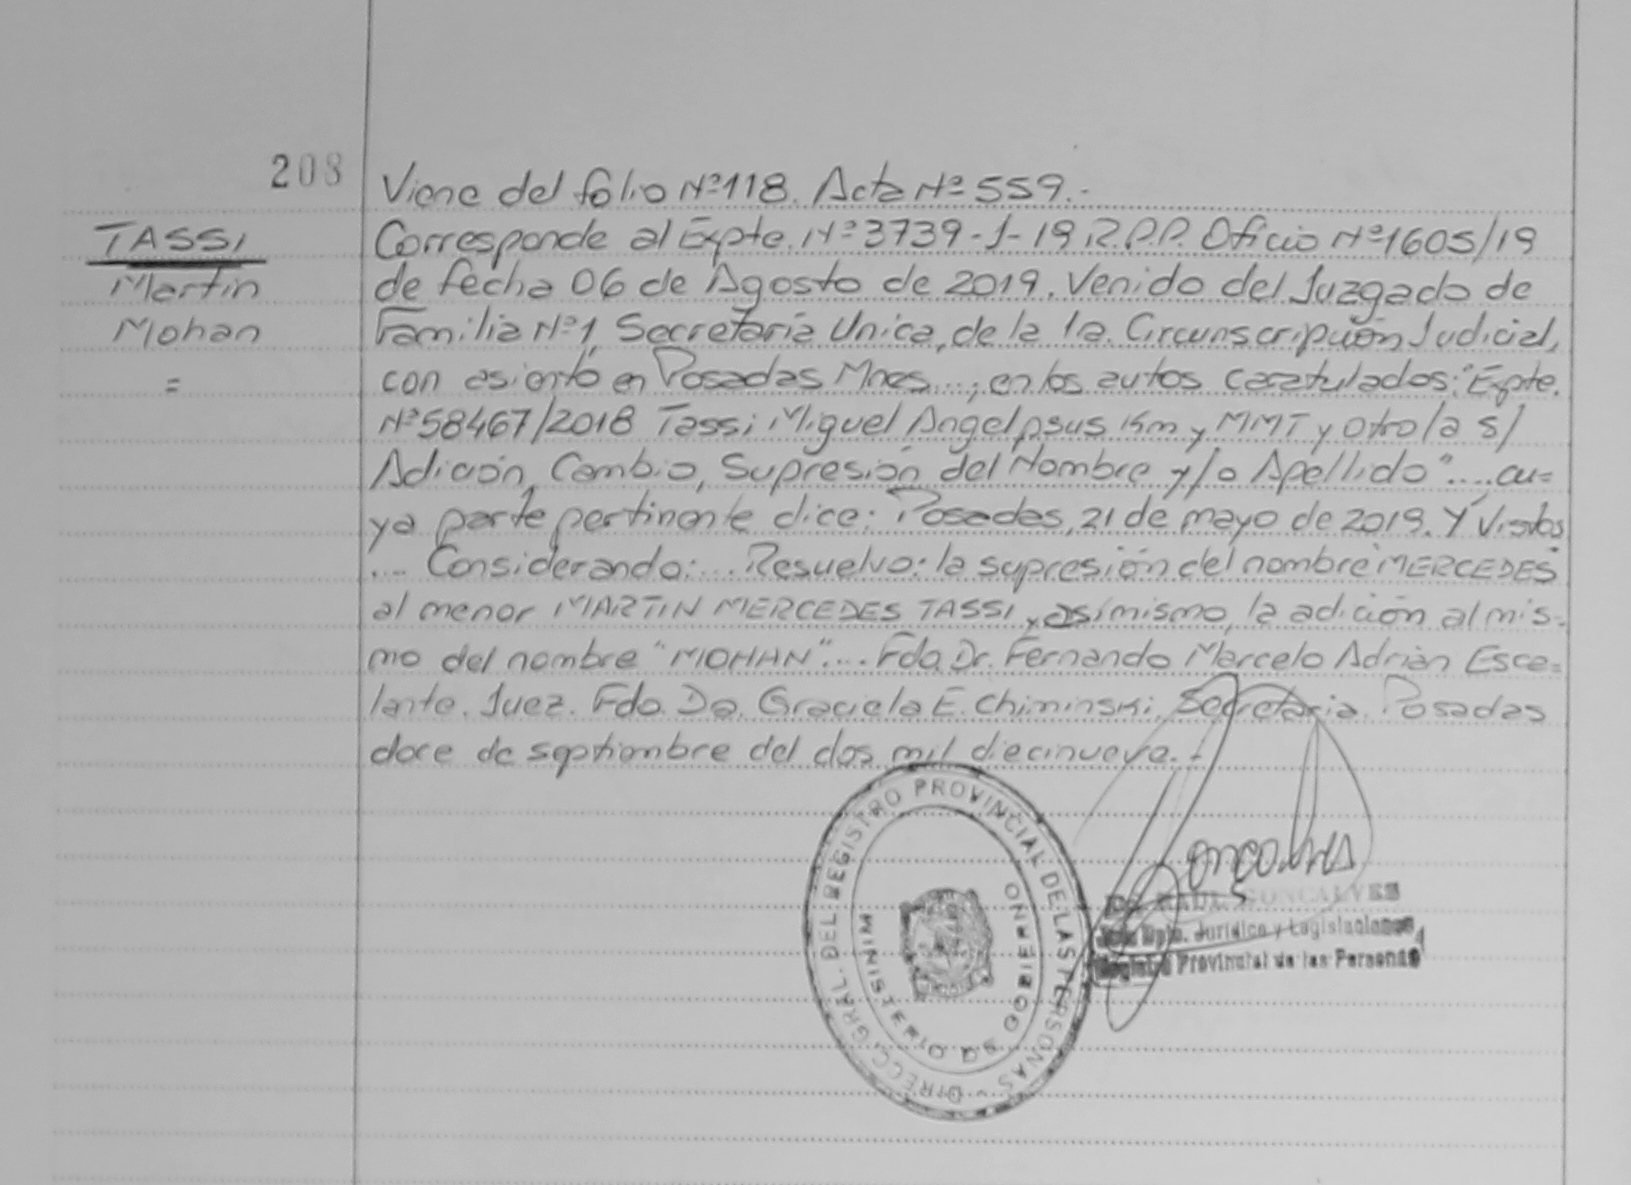 208
TASSI
Martin
Mohan
=
Viene del folio Nº118. Acta Nº 559.-
Corresponde al Expte. Nº 3739-J-19 R.P.P. Oficio Nº1605/19
de fecha 06 de Agosto de 2019. Venido del Juzgado de
Familia Nº1, Secretaría Unica, de la 1a. Circunscripción Judicial,
con asiento en Posadas Mnes...., en los autos caratulados: "Expte.
Nº58467/2018 Tassi Miguel Angel p sus hm y MMT y Otro/a S/
Adición, Cambio, Supresión del Nombre y/o Apellido".... cu=
ya parte pertinente dice: Posadas, 21 de mayo de 2019. Y Vistos
.... Considerando:... Resuelvo: la supresión del nombre "MERCEDES"
al menor MARTIN MERCEDES TASSI, y asímismo, la adición al mis-
mo del nombre "MOHAN".... Fdo. Dr. Fernando Marcelo Adrián Esca=
lante. Juez. Fdo. Dra. Graciela E. Chiminski, Secretaria. Posadas
doce de septiembre del dos mil diecinueve.-
DIRECC. GRAL. DEL REGISTRO PROVINCIAL DE LAS PERSONAS
MINISTERIO DE GOBIERNO
GONCALVES
Dpto. Jurídico y Legislaciones
Registro Provincial de las Personas